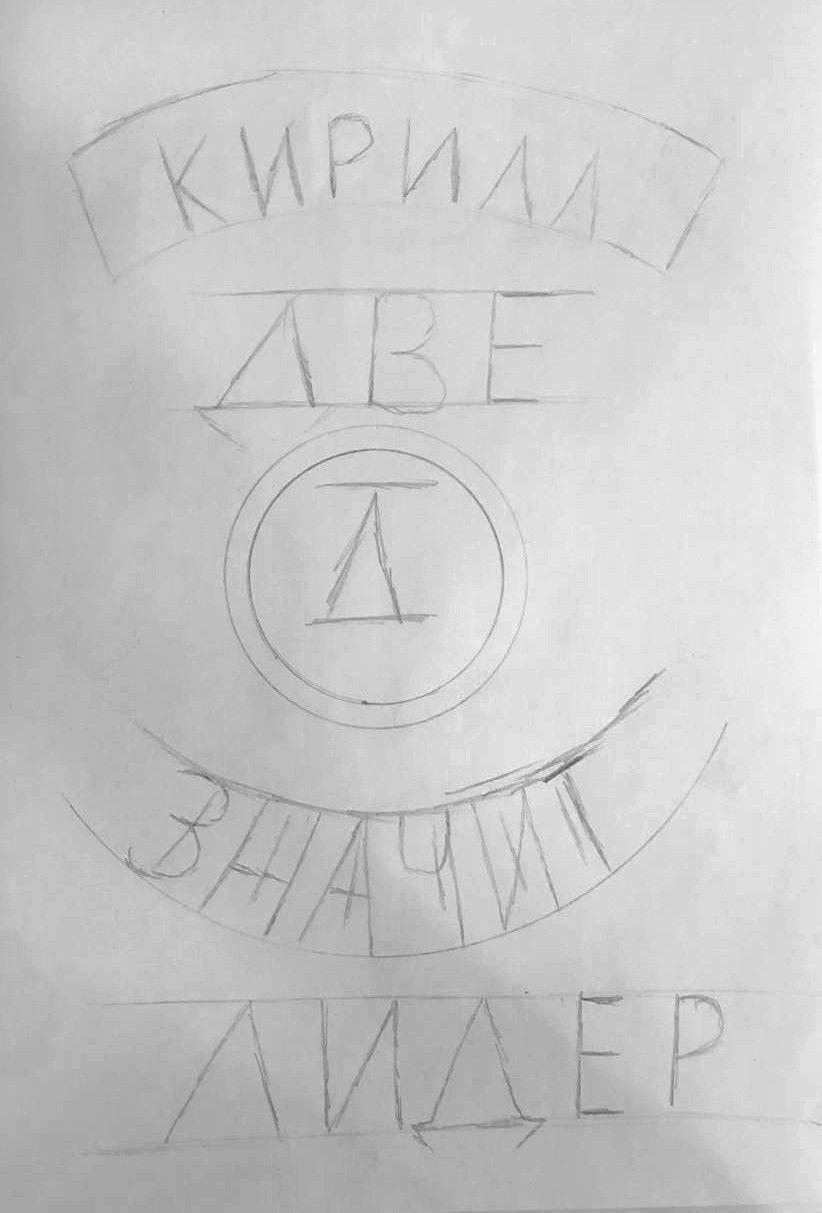 КИРИЛЛ
ДВЕ
Д
ЗНАЧИТ
ЛИДЕР